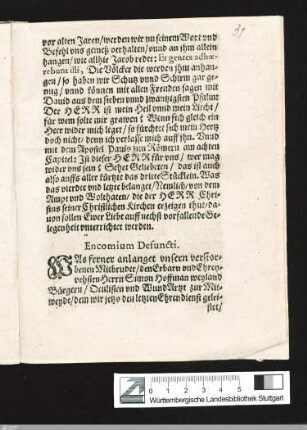 39
vor alten Jaren/werden wir nu seinem Wort vnd
Befehl vns gemeß verhalten/vnnd an jhm allein
hangen/wie allhie Jacob redet: Et gentes adhæ-
rebunt illi, Die Völcker die werden jhm anhan-
gen/so haben wir Schutz vnnd Schirm gar ge-
nug/vnnd können mit allen Frewden sagen mit
Dauid aus dem sieben vnnd zwantzigsten Psalm:
Der HERR ist mein Heil vnnd mein Liecht/
für wem solte mir grawen? Wenn sich gleich ein
Heer wider mich leget/so fürchtet sich mein Hertz
doch nicht/denn ich verlasse mich auff jhn. Vnnd
mit dem Apostel Paulo zun Römern am achten
Capitel: Ist dieser HERR für vns/wer mag
wider vns sein? Sehet Geliebeten/das ist auch
also auffs aller kürtzte das dritte Stücklein. Was
das vierdte vnd letzte belanget/Nemlich/von dem
Ampt vnd Wolthaten/die der HERR Chri-
stus seiner Christlichen Kirchen erzeigen thut/da-
uon sollen Ewer Liebe auff nechst vorfallende Ge-
legenheit vnterrichtet werden.
Encomium Defuncti.
WAs ferner anlanget vnsern verstor-
benen Mitbruder/den Erbarn vnd Ehren-
vehsten Herrn Simon Hoffman weyland
Bürgern/Oculisten vnd Wund Artzt zur Mit-
weyde/dem wir jetzo den letzten Ehren dienst gelei-
stet/
0 1 2 3 4 5 6 7 8 9 10
Württembergische Landesbibliothek Stuttgart